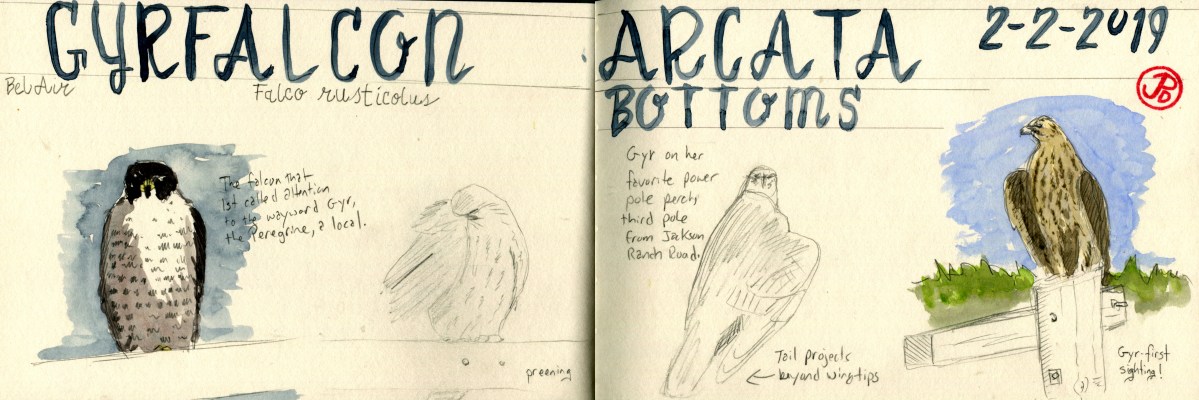 GYRFALCON
Falco rusticolus
The falcon that
1st called attention
to the wayward Gyr,
the Peregrine, a local.
preening
ARCATA
BOTTOMS
2-2-2019
Gyr on her
favorite power
pole perch,
third pole
from Jackson
Ranch Road.
Tail projects
beyond wingtips
Gyr-first
sighting!